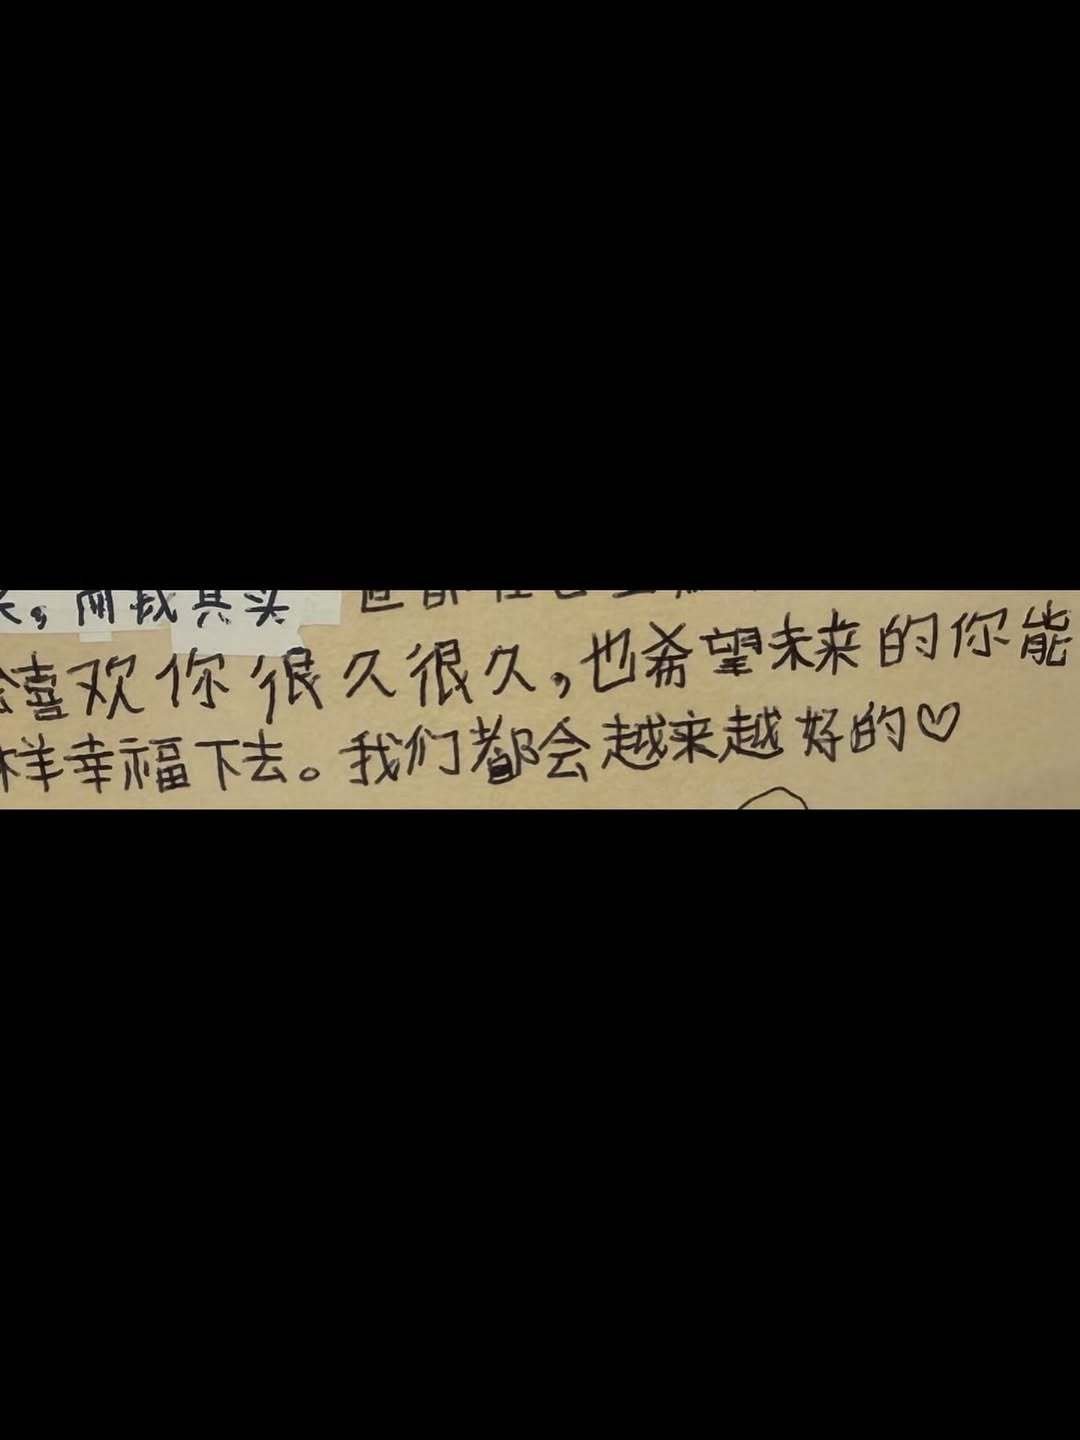 ，而我其实
会喜欢你很久很久，也希望未来的你能
样幸福下去。我们都会越来越好的♡